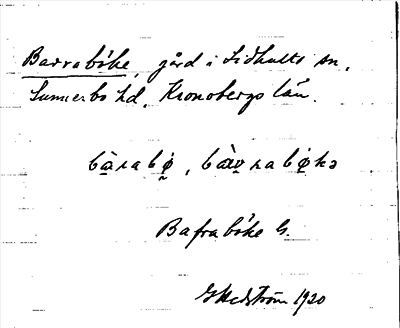 Barraböke, gård i Lidhults sn,
Sunnerbo hd, Kronobergs län.
bàrabø̣, bàv̱rabø̣kə
Bafraböke G.
GHedström 1920